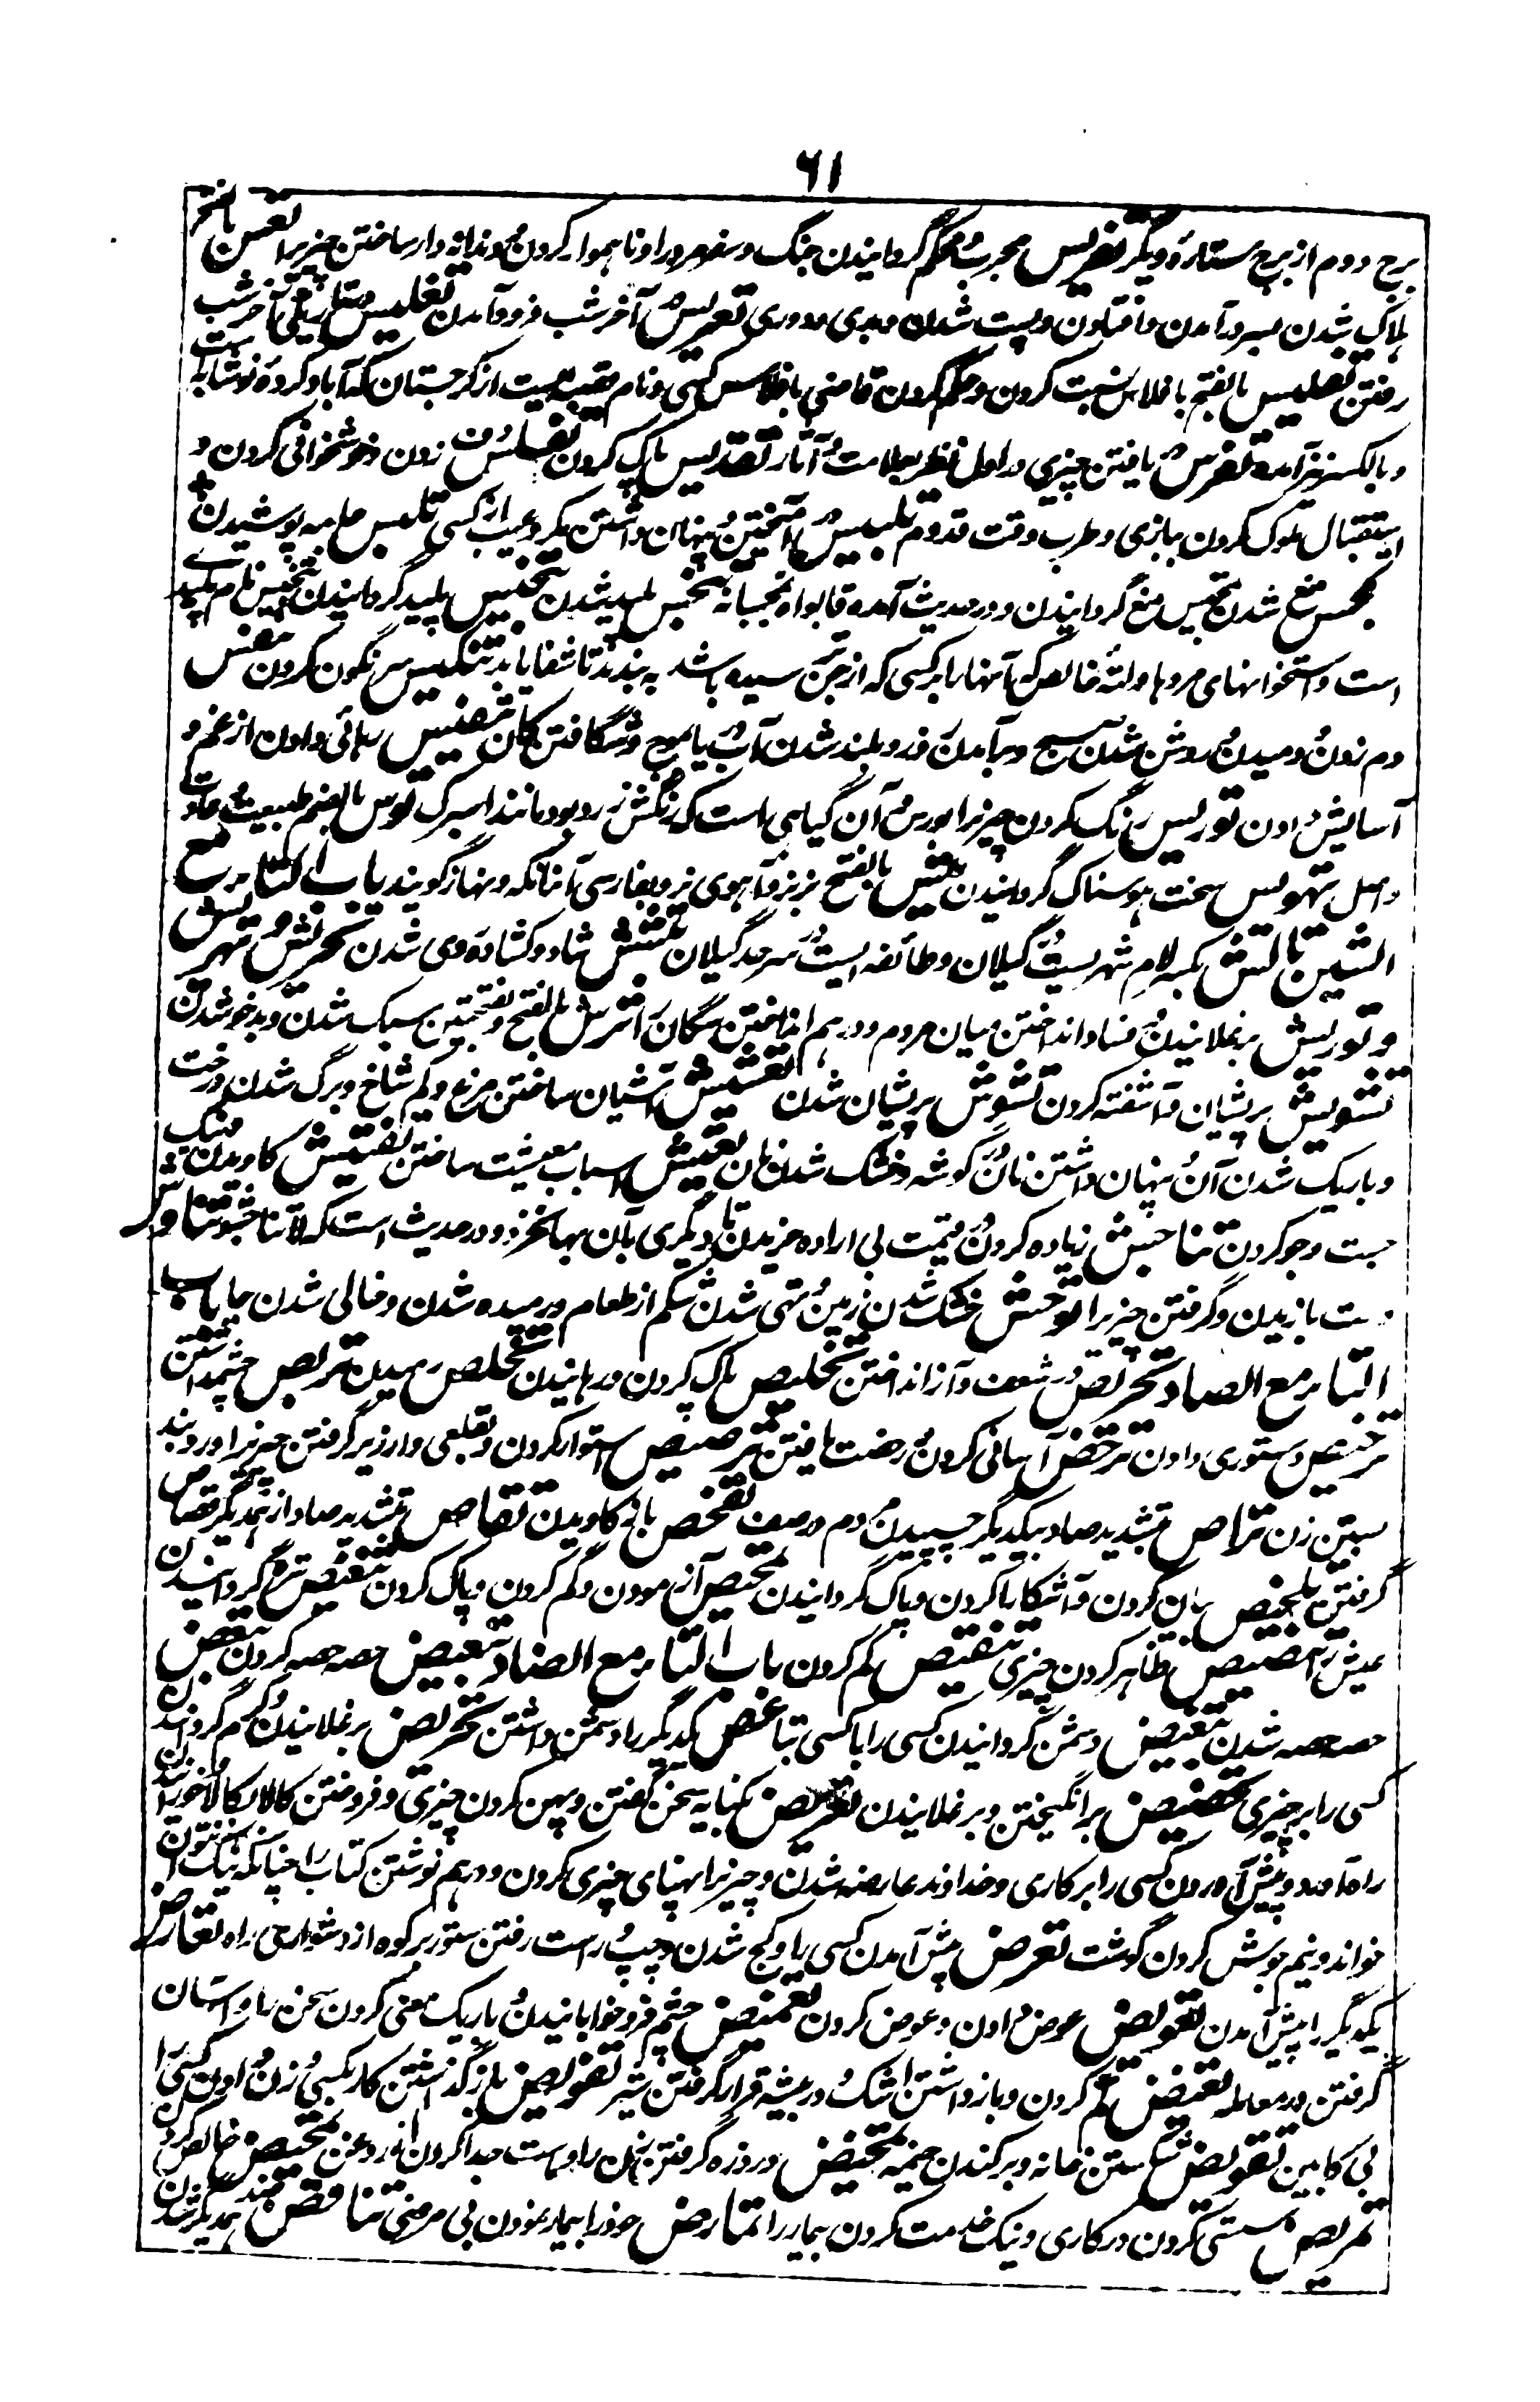 ۶۱
برج دوم از برج ستاره دیگر تضریس مجرب و محکم گردانیدن جنگ و سفر مرد را و ناهموار کردن و دندانه دار ساختن چیزیرا تعس بالفتح
هلاک شدن بسر درآمدن و افتادن و پست شدن و بدی و دوری تعریس آخر شب فرود آمدن تغلیس بتاریکی آخر شب
رفتن تفلیس بالفتح با فلاس نسبت کردن و حکم کردن قاضی بافلاس کسی و نام قصبه ایست از گرجستان که آباد کرده نوشابه است
و بالکسر نیز آمده تفرس یافتن چیزی در اول نظر بعلامت و آثار تقدیس پاک کردن تقلیس دف زدن و خوشخوانی کردن و
استقبال ملوک کردن ببازی و طرب وقت قدوم تلبیس آمیختن و پنهان داشتن مکر و عیب از کسی تلبس جامه پوشیدن
تمجس مغ شدن تمجیس مغ گردانیدن و در حدیث آمده فابواه یمجسانه تنجس پلید شدن تنجیس پلید گردانیدن تنجیس نام پلیدی
است و استخوانهای مردها و لته خالص که آنها را بر کسی که از جن ترسیده باشد به بندند تا شفا یابد تنکیس سرنگون کردن تنفس
دم زدن و دمیدن و روشن شدن صبح و برآمدن روز و بلند شدن آب دریا بموج و شگافتن کمان تنفیس رهائی دادن از غم و
آسایش دادن توریس رنگ کردن چیزیرا بورس و آن گیاهی است که رنگش زرد بود مانند اسپرک توس بالضم طبیعت و عادت
و اصل تهویس سخت هوسناک گردانیدن تیس بالفتح بز نر و آهوی نر و بفارسی آنانکه و نهاز گویند باب التاء مع
الشین تالش بکسر لام شهریست در گیلان و طائفه ایست در سرحد گیلان تبشش شاد و کشاده روی شدن تحریش و تهریش
و توریش برغلانیدن و فساد انداختن میان مردم و در هم انداختن سگان اترش بالفتح و بفتحتین سبک شدن و بدخو شدن
تشویش پریشان و آشفته کردن تشوش پریشان شدن تعشیش آشیان ساختن مرغ و کم شاخ و برگ شدن درخت
و باریک شدن آن و پنهان داشتن نان در گوشه و خشک شدن نان تعیش اسباب معیشت ساختن تفتیش کاویدن نیک
جست و جو کردن تناجش زیاده کردن در قیمت بی اراده خریدن تا دیگری بآن بها بخرد و در حدیث است که لا تناجشوا تناوش
دست بازیدن و گرفتن چیزیرا توحش خشک شدن زمین و تهی شدن شکم از طعام و رمیده شدن و خالی شدن جا باب
التاء مع الصاد تحریص در شعف و آز انداختن تخلیص پاک کردن و رهانیدن تخلص رهیدن تربص چشم داشتن
ترخیص دستوری دادن ترخص آسانی کردن و رخصت یافتن ترصیص استوار کردن و بقلعی و ارزیر گرفتن چیزیرا و روبند
بستن زن تراص بتشدید صاد بیکدیگر چسپیدن مردم در صف تفحص باز کاویدن تقاص بتشدید صاد از یکدیگر قصاص
گرفتن تلخیص بیان کردن و آشکارا کردن و پاک گردانیدن تمحیص آزمودن و کم کردن و پاک کردن تنغیص تیره گردانیدن
عیش را تنصیص ظاهر کردن چیزی تنقیص کم کردن باب التاء مع الضاد تبعیض حصه حصه کردن تبعض
حصه حصه شدن تبغیض دشمن گردانیدن کسی را با کسی تباغض یکدیگر را دشمن داشتن تحریض برغلانیدن و گرم گردانیدن
کسی را بر چیزی تحضیض برانگیختن و برغلانیدن تعریض بکنایه سخن گفتن و پهن کردن چیزی و فروختن کالا بکالا و خورانیدن
راه آورد و پیش آوردن کسی را بر کاری و خداوند عارضه شدن و چیزیرا پهنای چیزی کردن و در هم نوشتن کتاب را چنانکه نیک نتوان
خواند و نیم جوش کردن گوشت تعرض پیش آمدن کسی را و کج شدن و چپ و راست رفتن ستور بر کوه از دشواری راه تعارض
یکدیگر را پیش آمدن تعویض عوض دادن و عوض کردن تغمیض چشم فرو خوابانیدن و باریک معنی کردن سخن را و آسان
گرفتن در معامله تغییض کم کردن و باز داشتن اشک و در بیشه قرار گرفتن شیر تفویض باز گذاشتن کار بکسی و زن دادن کسی را
بی کابین تقویض شکستن خانه و برکندن خیمه تمخیض در زه گرفتن زن را و ماست جدا کردن از روغن تمحیض خالص کردن
تمریض سستی کردن در کاری و نیک خدمت کردن بیمار را تمارض خود را بیمار نمودن بی مرضی تناقض ضد همدیگر شدن